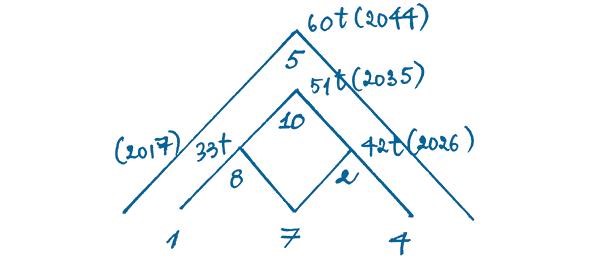 60t (2044)
5
51t (2035)
10
(2017) 33t 42t (2026)
8 2
1 7 4